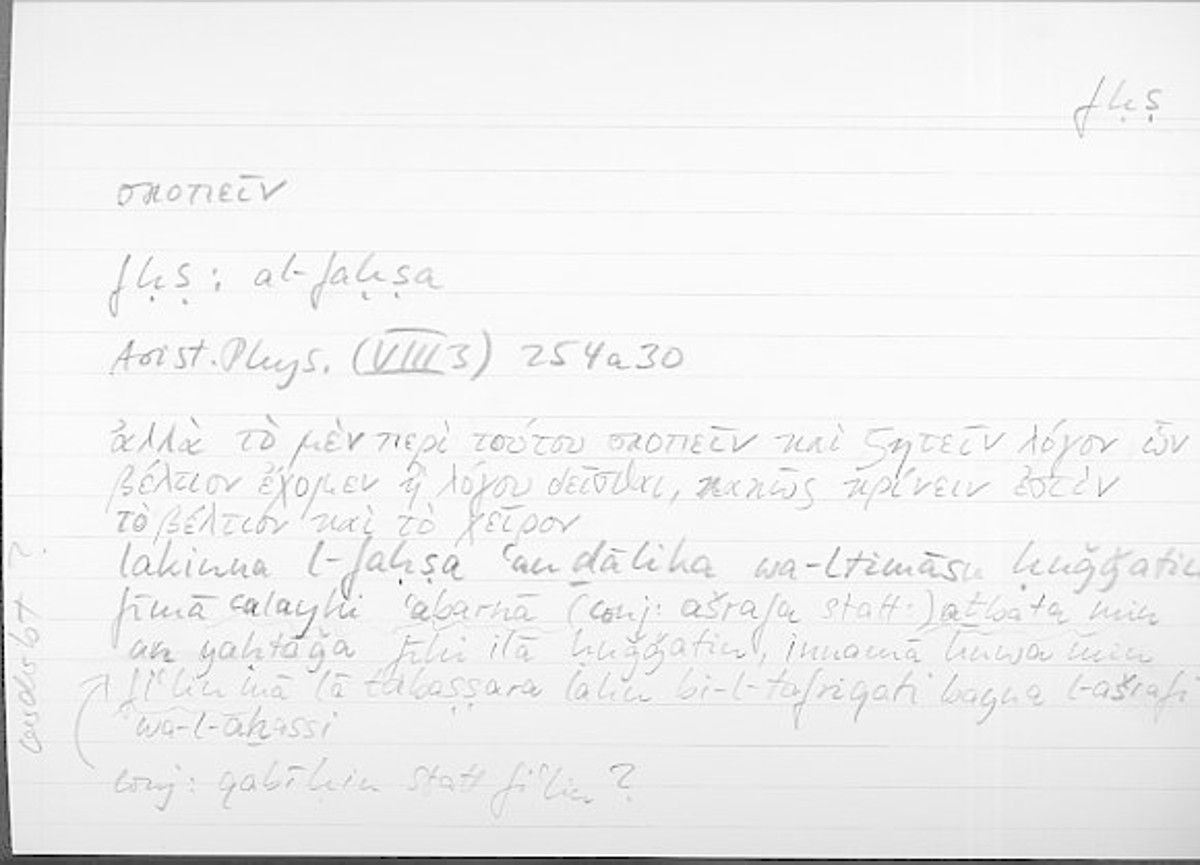 fḥṣ
σκοπεῖν
fḥṣ: al-faḥṣa
Arist. Phys. (VIII 3) 254a30
ἀλλὰ τὸ μὲν περὶ τούτου σκοπεῖν καὶ ζητεῖν λόγον ὧν
βέλτιον ἔχομεν ἢ λόγου δεῖσθαι, κακῶς κρίνειν ἐστὶν
τὸ βέλτιον καὶ τὸ χεῖρον
lakinna l-faḥṣa ʿan ḏālika wa-ltimāsu ḥuǧǧatin
fīmā ʿalayhi (conj: ašrafa statt:) aṯbata min
an yaḥtāǧa fīhi ilā ḥuǧǧatin, innamā huwa min
fiʿlin mā lā tabaṣṣara lahu bi-l-tafriqati bayna l-ašrafi
wa-l-aḫassi
conj: qabīḥin statt fiʿlin ?